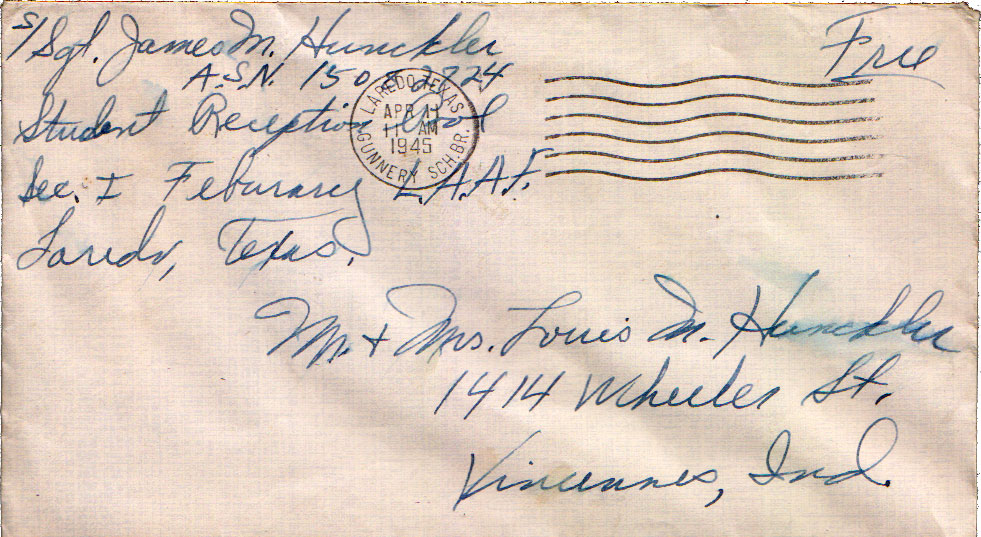 S/Sgt. James M. Hunckler
A.S.N. 150 2724
Student Reception Pool
Sec. I Feburary L.A.A.F.
Laredo, Texas.
Free
LAREDO, TEXAS
APR 11
11 AM
1945
GUNNERY SCH. BR.
Mr. + Mrs. Louis M. Hunckler
1414 Wheeler St.
Vincennes, Ind.